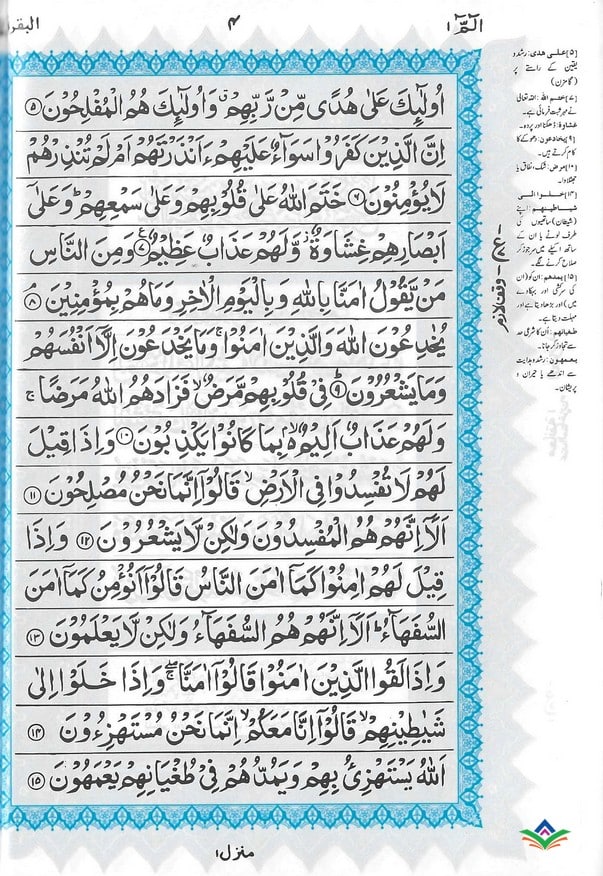 الٓمّٓ ۱
۴
البقر
اُولٰٓئِكَ عَلٰى هُدًى مِّنْ رَّبِّهِمْ ۗ وَاُولٰٓئِكَ هُمُ الْمُفْلِحُوْنَ ۵
اِنَّ الَّذِيْنَ كَفَرُوْا سَوَآءٌ عَلَيْهِمْ ءَاَنْذَرْتَهُمْ اَمْ لَمْ تُنْذِرْهُمْ
لَا يُؤْمِنُوْنَ ۶ خَتَمَ اللّٰهُ عَلٰى قُلُوْبِهِمْ وَعَلٰى سَمْعِهِمْ ؕ وَعَلٰٓى
اَبْصَارِهِمْ غِشَاوَةٌ ؗ وَّلَهُمْ عَذَابٌ عَظِيْمٌ ۷ وَمِنَ النَّاسِ
مَنْ يَّقُوْلُ اٰمَنَّا بِاللّٰهِ وَبِالْيَوْمِ الْاٰخِرِ وَمَا هُمْ بِمُؤْمِنِيْنَ ۘ ۸
يُخٰدِعُوْنَ اللّٰهَ وَالَّذِيْنَ اٰمَنُوْا ۚ وَمَا يَخْدَعُوْنَ اِلَّآ اَنْفُسَهُمْ
وَمَا يَشْعُرُوْنَ ؕ ۹ فِيْ قُلُوْبِهِمْ مَّرَضٌ ۙ فَزَادَهُمُ اللّٰهُ مَرَضًا ۚ
وَلَهُمْ عَذَابٌ اَلِيْمٌ ۢۙ بِمَا كَانُوْا يَكْذِبُوْنَ ۱۰ وَاِذَا قِيْلَ
لَهُمْ لَا تُفْسِدُوْا فِي الْاَرْضِ ۙ قَالُوْٓا اِنَّمَا نَحْنُ مُصْلِحُوْنَ ۱۱
اَلَآ اِنَّهُمْ هُمُ الْمُفْسِدُوْنَ وَلٰكِنْ لَّا يَشْعُرُوْنَ ۱۲ وَاِذَا
قِيْلَ لَهُمْ اٰمِنُوْا كَمَآ اٰمَنَ النَّاسُ قَالُوْٓا اَنُؤْمِنُ كَمَآ اٰمَنَ
السُّفَهَآءُ ؕ اَلَآ اِنَّهُمْ هُمُ السُّفَهَآءُ وَلٰكِنْ لَّا يَعْلَمُوْنَ ۱۳
وَاِذَا لَقُوا الَّذِيْنَ اٰمَنُوْا قَالُوْٓا اٰمَنَّا ۖۚ وَاِذَا خَلَوْا اِلٰى
شَيٰطِيْنِهِمْ ۙ قَالُوْٓا اِنَّا مَعَكُمْ ۙ اِنَّمَا نَحْنُ مُسْتَهْزِءُوْنَ ۱۴
اَللّٰهُ يَسْتَهْزِئُ بِهِمْ وَيَمُدُّهُمْ فِيْ طُغْيَانِهِمْ يَعْمَهُوْنَ ۱۵
[۵] علی ھدی: رشد و
یقین کے راستے پر
(گامزن)
[۷] ختم اللہ: اللہ تعالٰی
نے مہر ثبت فرمائی ہے۔
غشاوۃ: ڈھکنا اور پردہ۔
[۹] یخادعون: دھوکے کا
کام کرتے ہیں۔
[۱۰] مرض: شک، نفاق یا
[۱۴] خلوا الی
شیاطینھم: اپنے
(شیطان) ساتھیوں کی
طرف لوٹے یا ان کے
[۱۵] یمدھم: ان کو (ان
کی سرکشی اور بہکاوے
میں) اور بڑھا دیتا ہے اور
مہلت دیتا ہے۔
طغیانھم: ان کا شرعی حد
سے تجاوز کر جانا۔
یعمھون: رشد و ہدایت
سے اندھے یا حیران و
پریشان۔
وقف لازم
منزل ۱